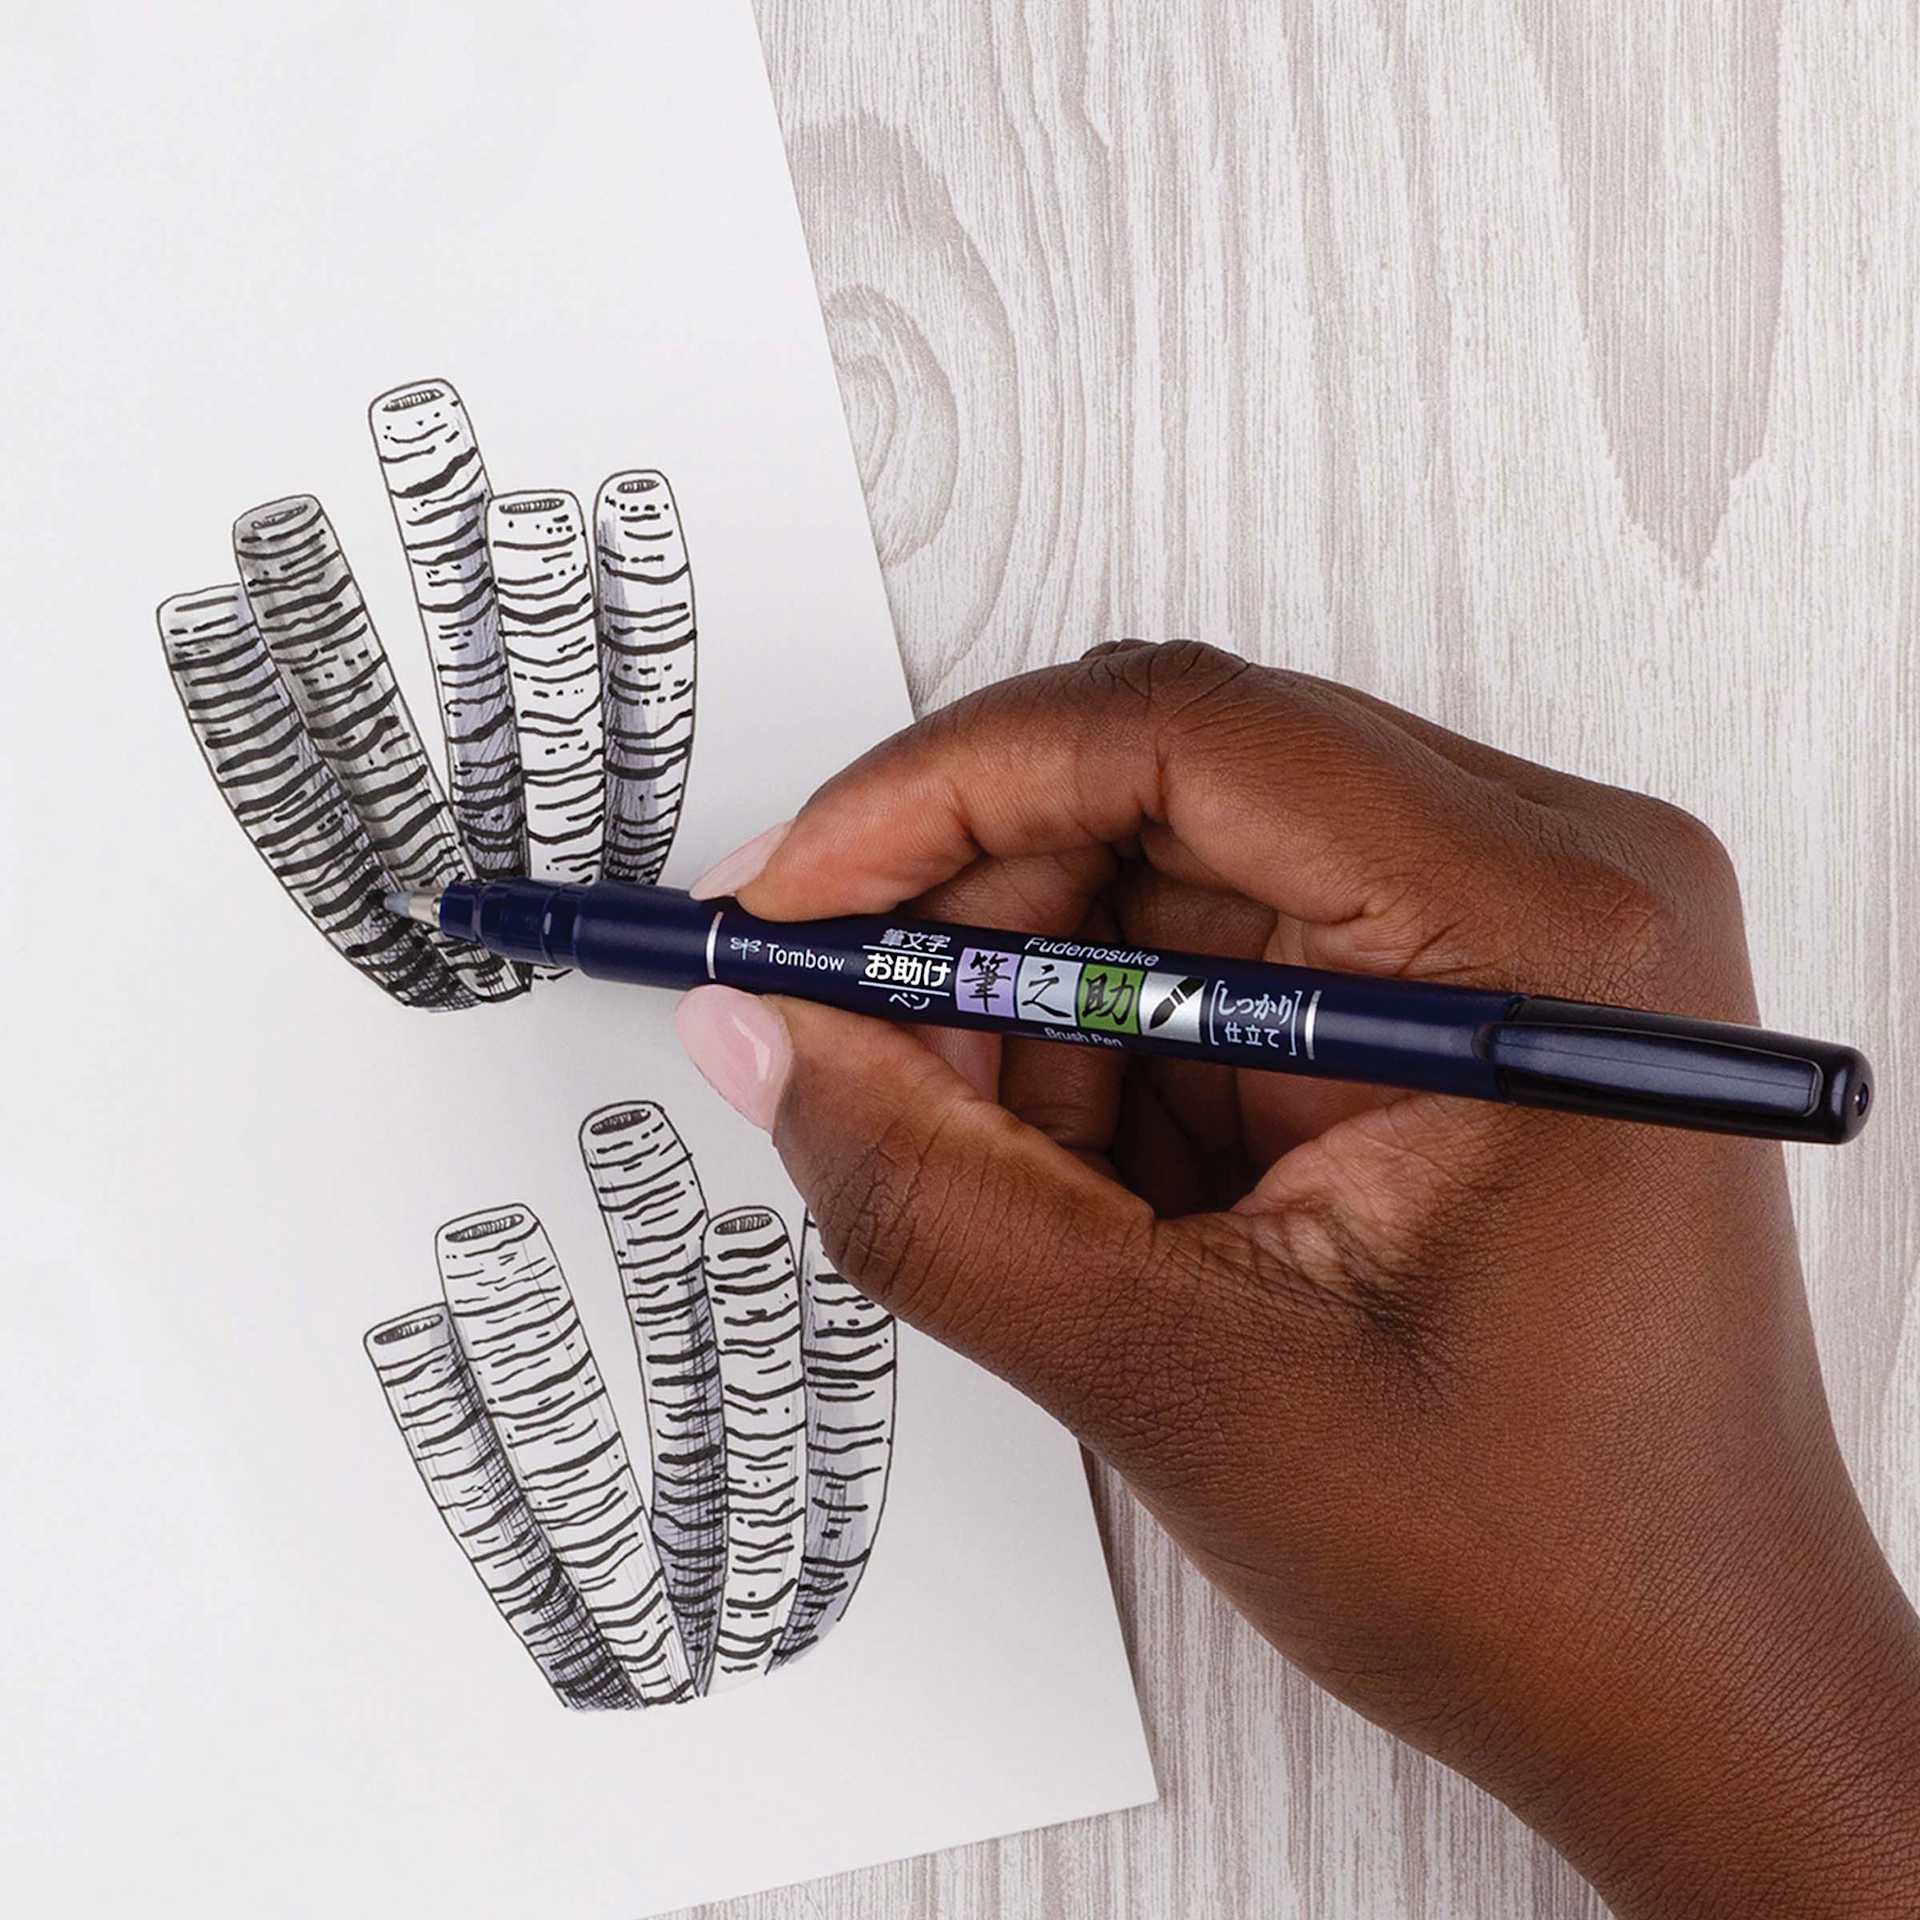 Tombow
筆文字
お助け
ペン
Fudenosuke
筆之助
Brush Pen
[しっかり
仕立て]